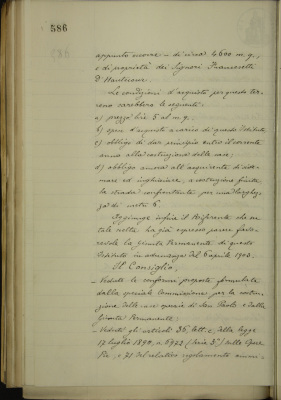 586
appunto ancora – di circa 4600 m. q.,
e di proprietà dei Signori Franceschi
D'Hauteour.
Le condizioni d'acquisto per questo ter=
reno sarebbero le seguenti:
a) prezzo lire 5 al m. q.;
b) spese d'acquisto a carico di questo Istituto;
c) obbligo di dar principio entro il corrente
anno alla costruzione delle case;
d) obbligo ancora all'acquirente di
ed inghiaiare, a costruzione finita,
la strada confrontante per una larghez=
za di metri 6.
Aggiunge infine il Riferente che su
tale nota ha già espresso parere favo=
revole la Giunta Permanente di questo
Istituto in adunanza del 6 aprile 1906.
Il Consiglio;
– Vedute le conformi proposte formulate
dalla speciale Commissione per la costru=
zione delle case operaie di San Paolo e dalla
Giunta Permanente;
– Veduti gli articoli 36, lett. e, della legge
17 luglio 1890, n. 6972 (Serie 3ª) sulle Opere
Pie, e 71 del relativo regolamento ammi=